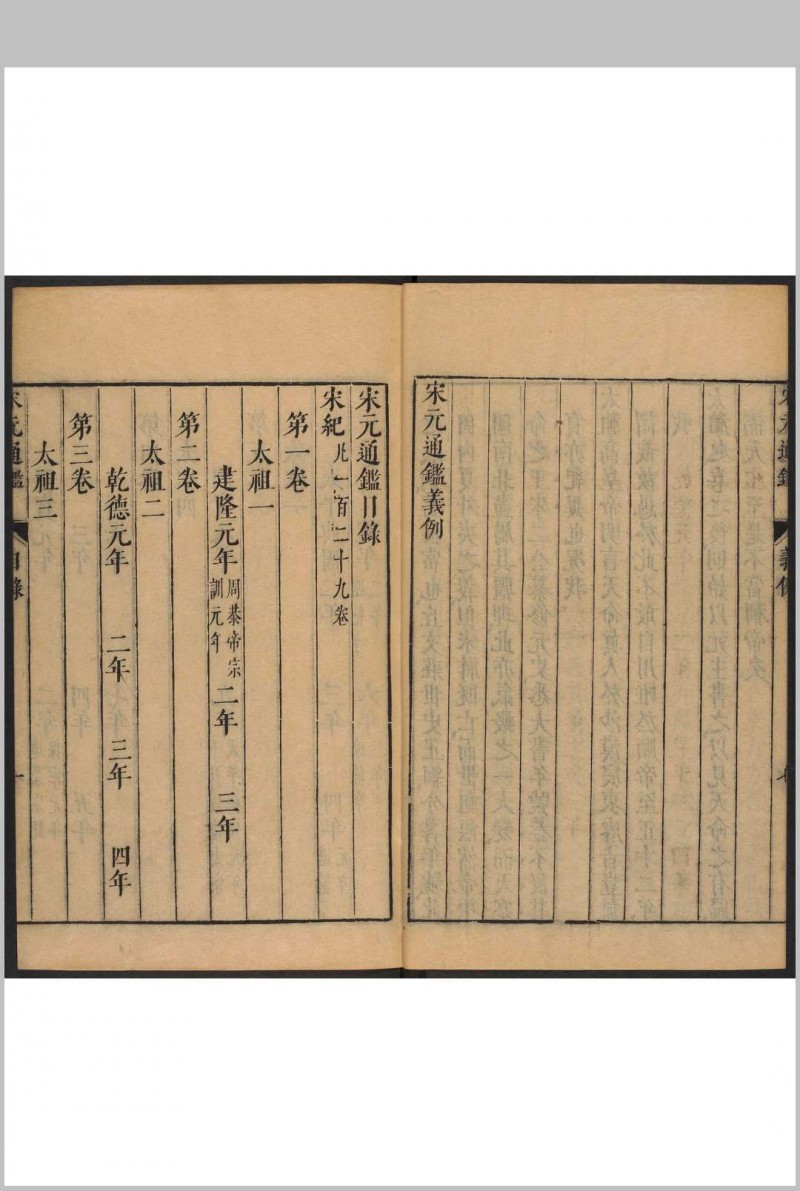 宋元通鑑
義例
宋元通鑑義例
宋元通鑑目錄
宋紀 凡一百二十九卷
第一卷
太祖一
建隆元年 周恭帝宗訓元年 二年 三年
第二卷
太祖二
乾德元年 二年 三年 四年
第三卷
太祖三
宋元通鑑
目錄
一